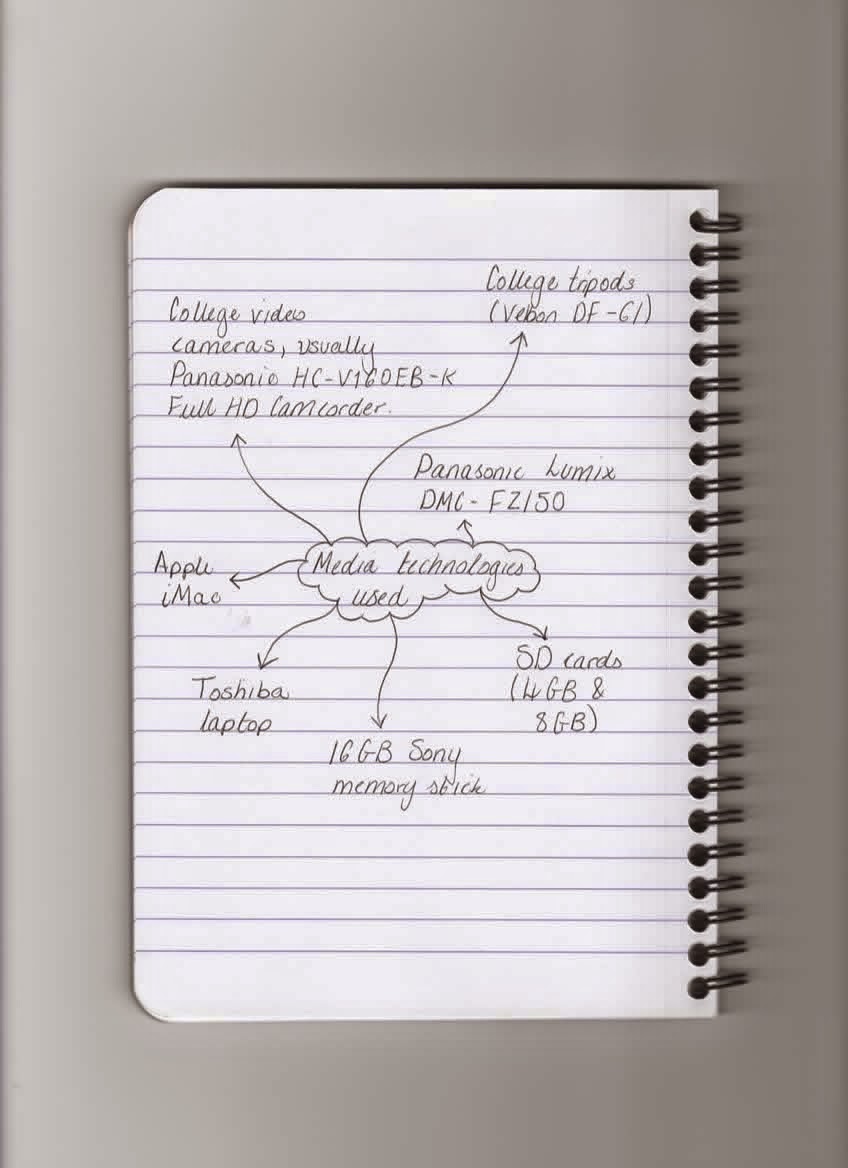 College tripods
(Vebon DF-61)
College video
cameras, usually
Panasonic HC-V160EB-K
Full HD Camcorder.
Panasonic Lumix
DMC-FZ150
Media technologies
used
Apple
iMac
Toshiba
laptop
16GB Sony
memory stick
SD cards
(4GB &
8GB)